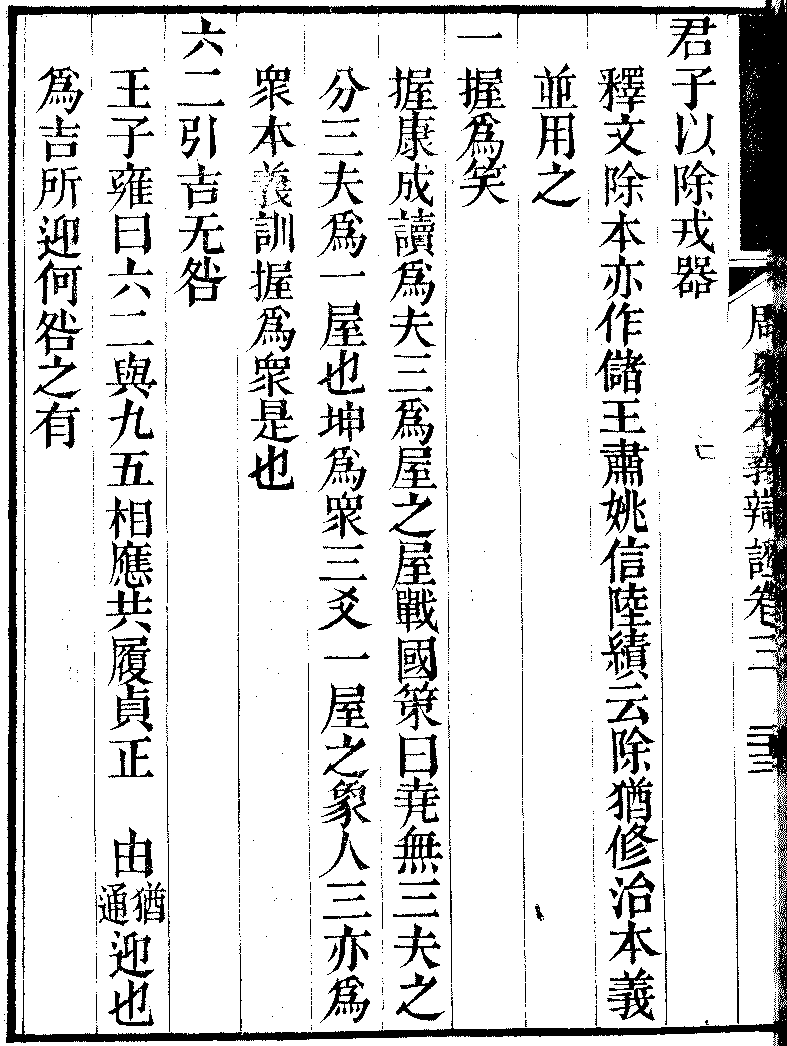 君子以除戎器
釋文除本亦作儲王肅姚信陸績云除猶修治本義
並用之
一握爲笑
握康成讀爲夫三爲屋之屋戰國策曰堯無三夫之
分三夫爲一屋也坤爲衆三爻一屋之象人三亦爲
衆本義訓握爲衆是也
六二引吉无咎
王子雍曰六二與九五相應共履貞正 由猶通迎也
爲吉所迎何咎之有
周易本義辯證卷三 三三